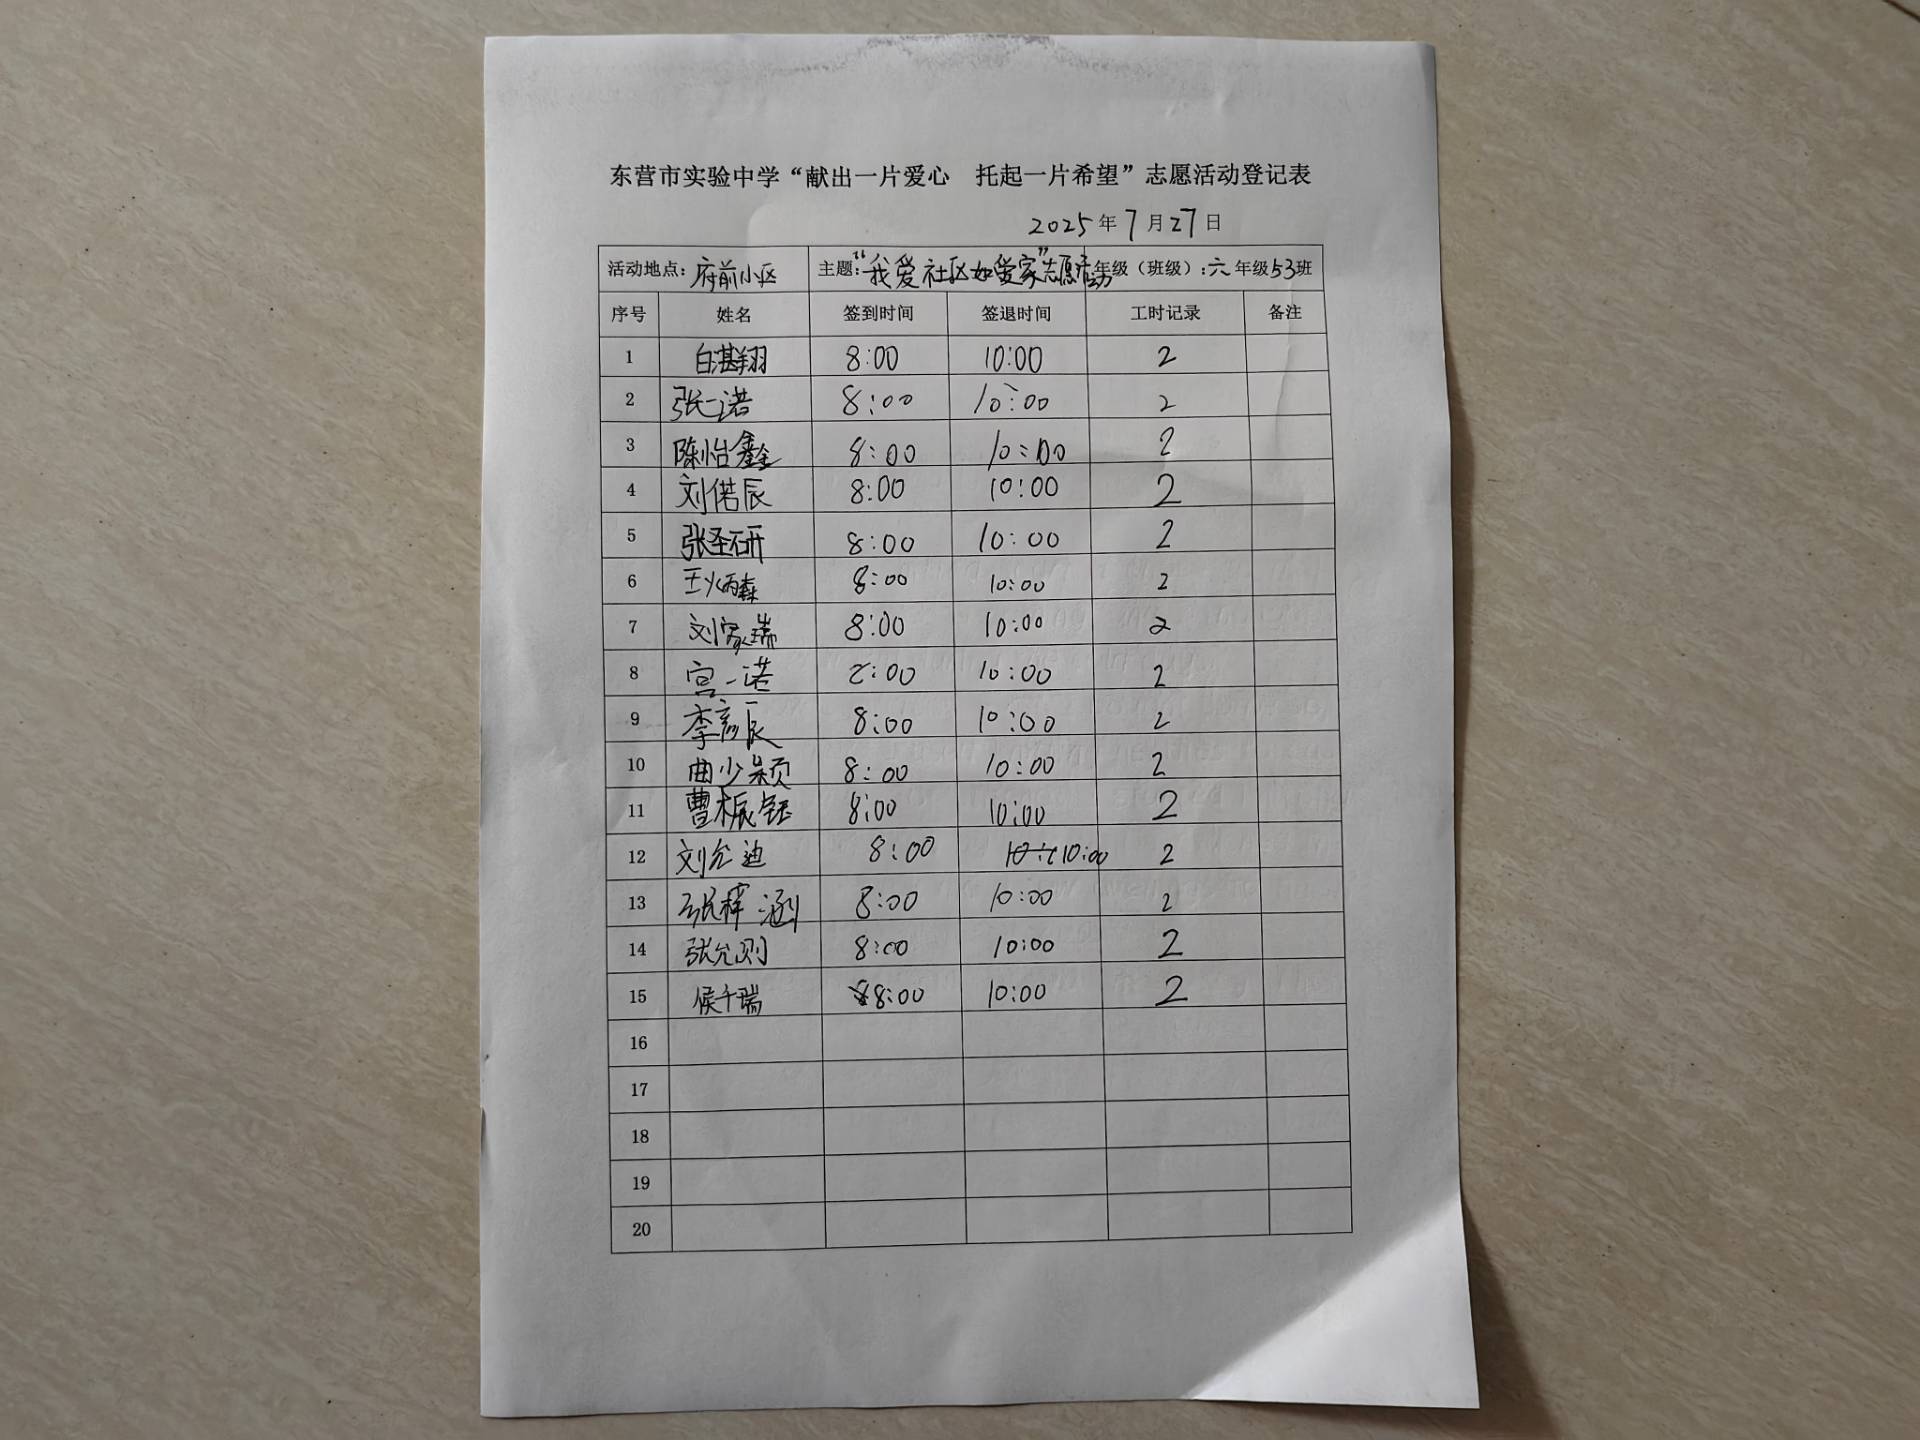 东营市实验中学“献出一片爱心 托起一片希望”志愿活动登记表
2025年7月27日
活动地点：府前小区 主题：“我爱社区如爱家”志愿活动 年级（班级）：六年级53班
序号 姓名 签到时间 签退时间 工时记录 备注
1 白湛翔 8:00 10:00 2
2 张一诺 8:00 10:00 2
3 陈怡鑫 8:00 10:00 2
4 刘偌辰 8:00 10:00 2
5 张圣研 8:00 10:00 2
6 王炳森 8:00 10:00 2
7 刘家瑞 8:00 10:00 2
8 宫一诺 8:00 10:00 2
9 李彦辰 8:00 10:00 2
10 曲少颖 8:00 10:00 2
11 曹振钰 8:00 10:00 2
12 刘允迪 8:00 10:00 2
13 张梓涵 8:00 10:00 2
14 张允则 8:00 10:00 2
15 侯千瑞 8:00 10:00 2
16
17
18
19
20